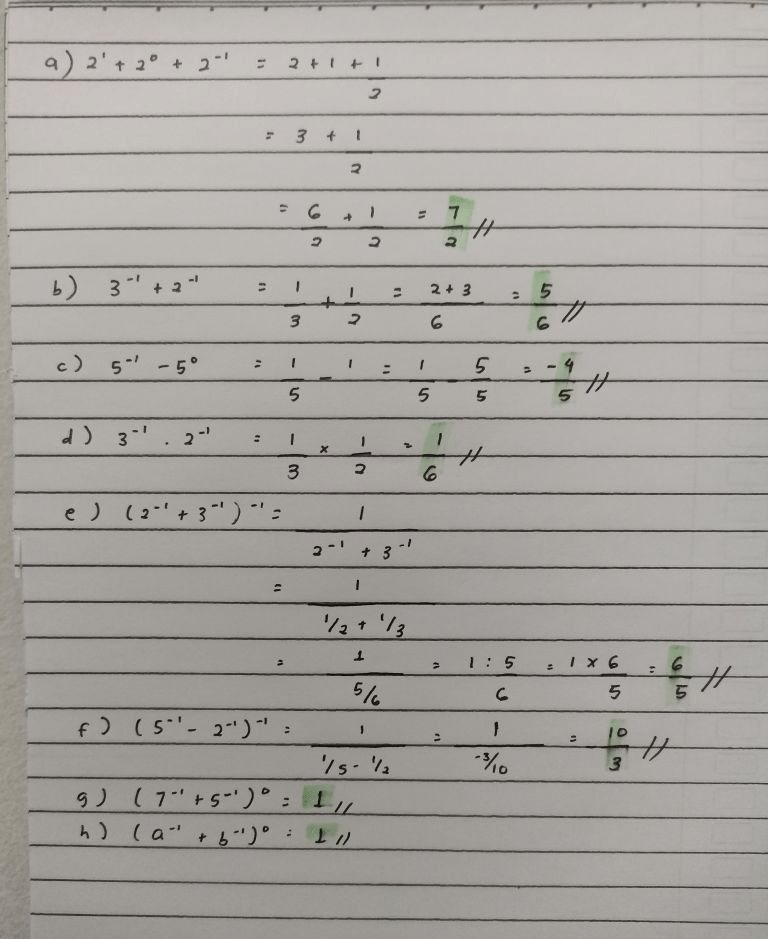 a) 2¹ + 2⁰ + 2⁻¹ = 2 + 1 + 1/2
= 3 + 1/2
= 6/2 + 1/2 = 7/2 //
b) 3⁻¹ + 2⁻¹ = 1/3 + 1/2 = (2+3)/6 = 5/6 //
c) 5⁻¹ - 5⁰ = 1/5 - 1 = 1/5 - 5/5 = -4/5 //
d) 3⁻¹ . 2⁻¹ = 1/3 × 1/2 = 1/6 //
e) (2⁻¹ + 3⁻¹)⁻¹ = 1/(2⁻¹ + 3⁻¹)
= 1/(1/2 + 1/3)
= 1/(5/6) = 1 : 5/6 = 1 × 6/5 = 6/5 //
f) (5⁻¹ - 2⁻¹)⁻¹ = 1/(1/5 - 1/2) = 1/(-3/10) = -10/3 //
g) (7⁻¹ + 5⁻¹)⁰ = 1 //
h) (a⁻¹ + b⁻¹)⁰ = 1 //